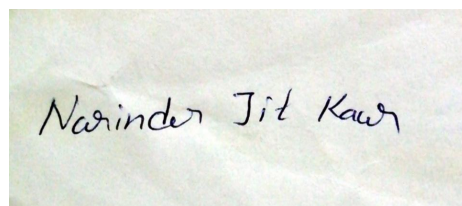 Narinder Jit Kaur